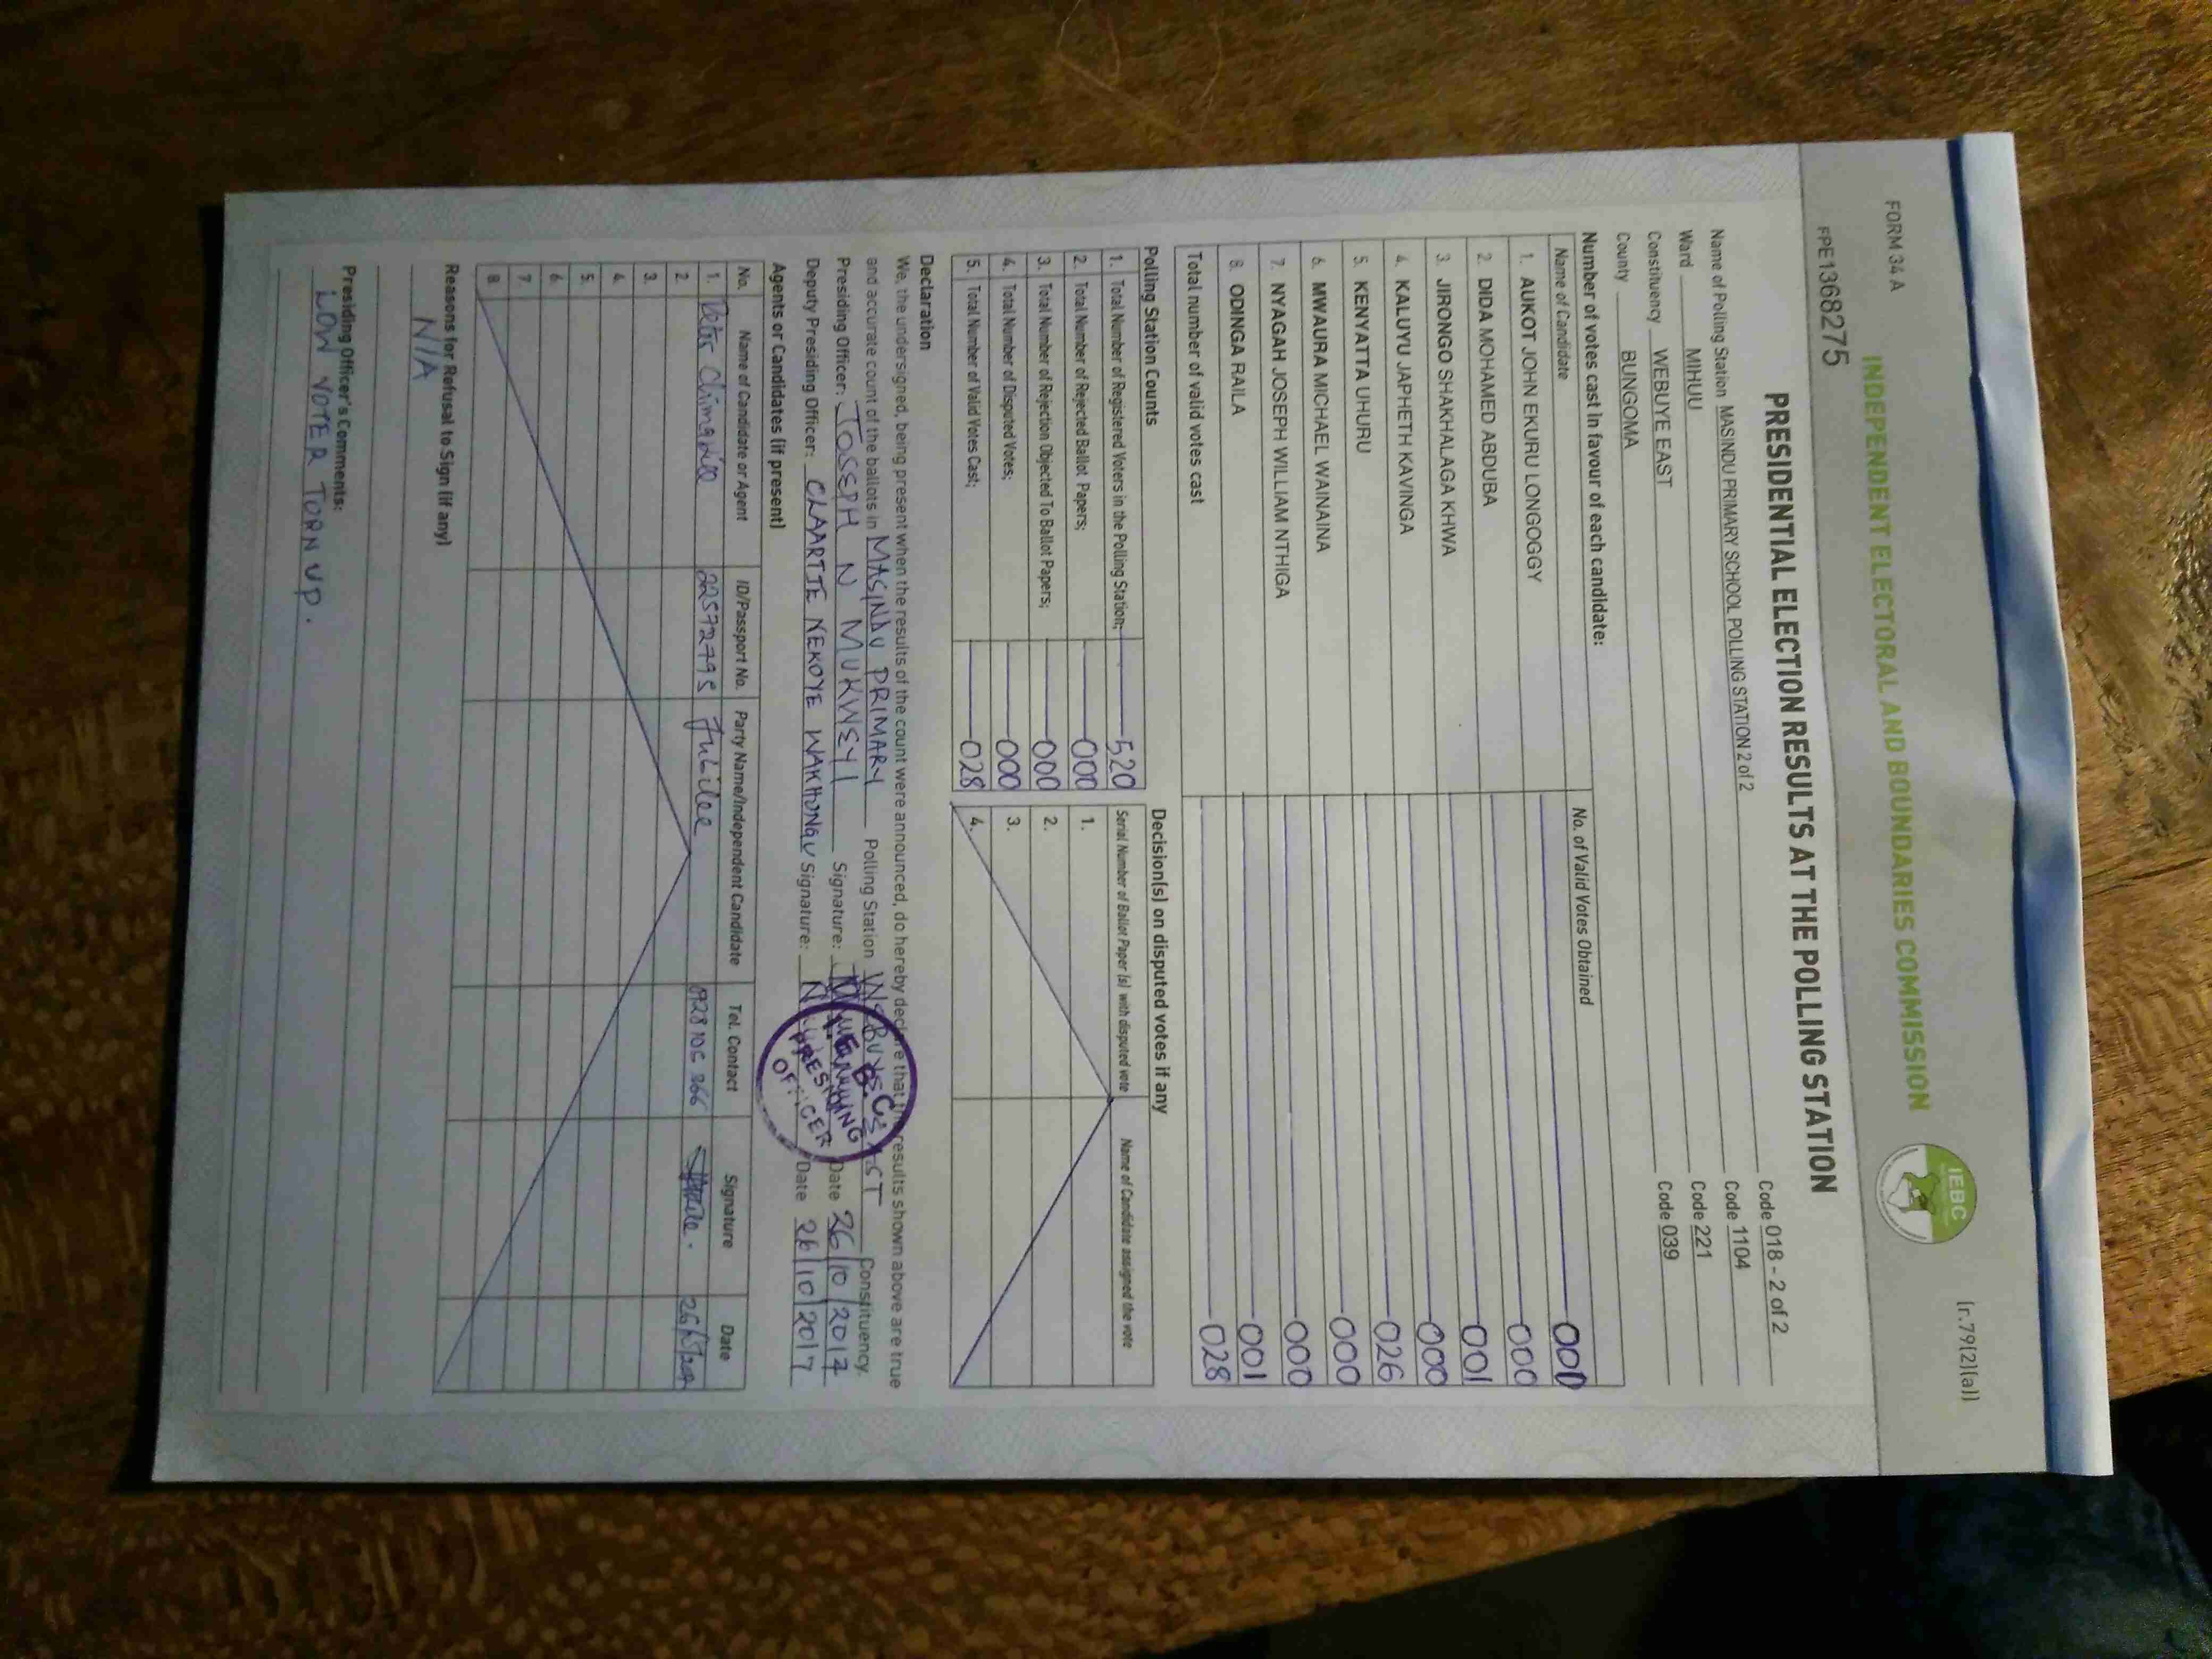 FORM 34 A
(r.79(2)(a))
INDEPENDENT ELECTORAL AND BOUNDARIES COMMISSION
IEBC
FPE1368275
PRESIDENTIAL ELECTION RESULTS AT THE POLLING STATION
Name of Polling Station MASINDU PRIMARY SCHOOL POLLING STATION 2 of 2 Code 018 - 2 of 2
Ward MIHUU Code 1104
Constituency WEBUYE EAST Code 221
County BUNGOMA Code 039
Number of votes cast in favour of each candidate:
Name of Candidate No. of Valid Votes Obtained
1. AUKOT JOHN EKURU LONGOGGY 000
2. DIDA MOHAMED ABDUBA 000
3. JIRONGO SHAKHALAGA KHWA 001
4. KALUYU JAPHETH KAVINGA 000
5. KENYATTA UHURU 026
6. MWAURA MICHAEL WAINAINA 000
7. NYAGAH JOSEPH WILLIAM NTHIGA 000
8. ODINGA RAILA 001
Total number of valid votes cast 028
Polling Station Counts Decision(s) on disputed votes if any
1. Total Number of Registered Voters in the Polling Station; 520 Serial Number of Ballot Paper (s) with disputed vote Name of Candidate assigned the vote
2. Total Number of Rejected Ballot Papers; 000 1.
3. Total Number of Rejection Objected To Ballot Papers; 000 2.
4. Total Number of Disputed Votes; 000 3.
5. Total Number of Valid Votes Cast; 028 4.
Declaration
We, the undersigned, being present when the results of the count were announced, do hereby declare that the results shown above are true
and accurate count of the ballots in MASINDU PRIMARY Polling Station WEBUYE EAST Constituency.
Presiding Officer: JOSEPH N MUKWEYI Signature: Date 26/10/2017
Deputy Presiding Officer: NEKOYE WAKHUNGU Signature: Date 26/10/2017
OFFICER
Agents or Candidates (if present)
No. Name of Candidate or Agent ID/Passport No. Party Name/Independent Candidate Tel. Contact Signature Date
1. 22572795 Jubilee
2.
3.
4.
5.
6.
7.
8.
Reasons for Refusal to Sign (if any)
N/A
Presiding Officer's Comments:
LOW VOTER TORN UP.